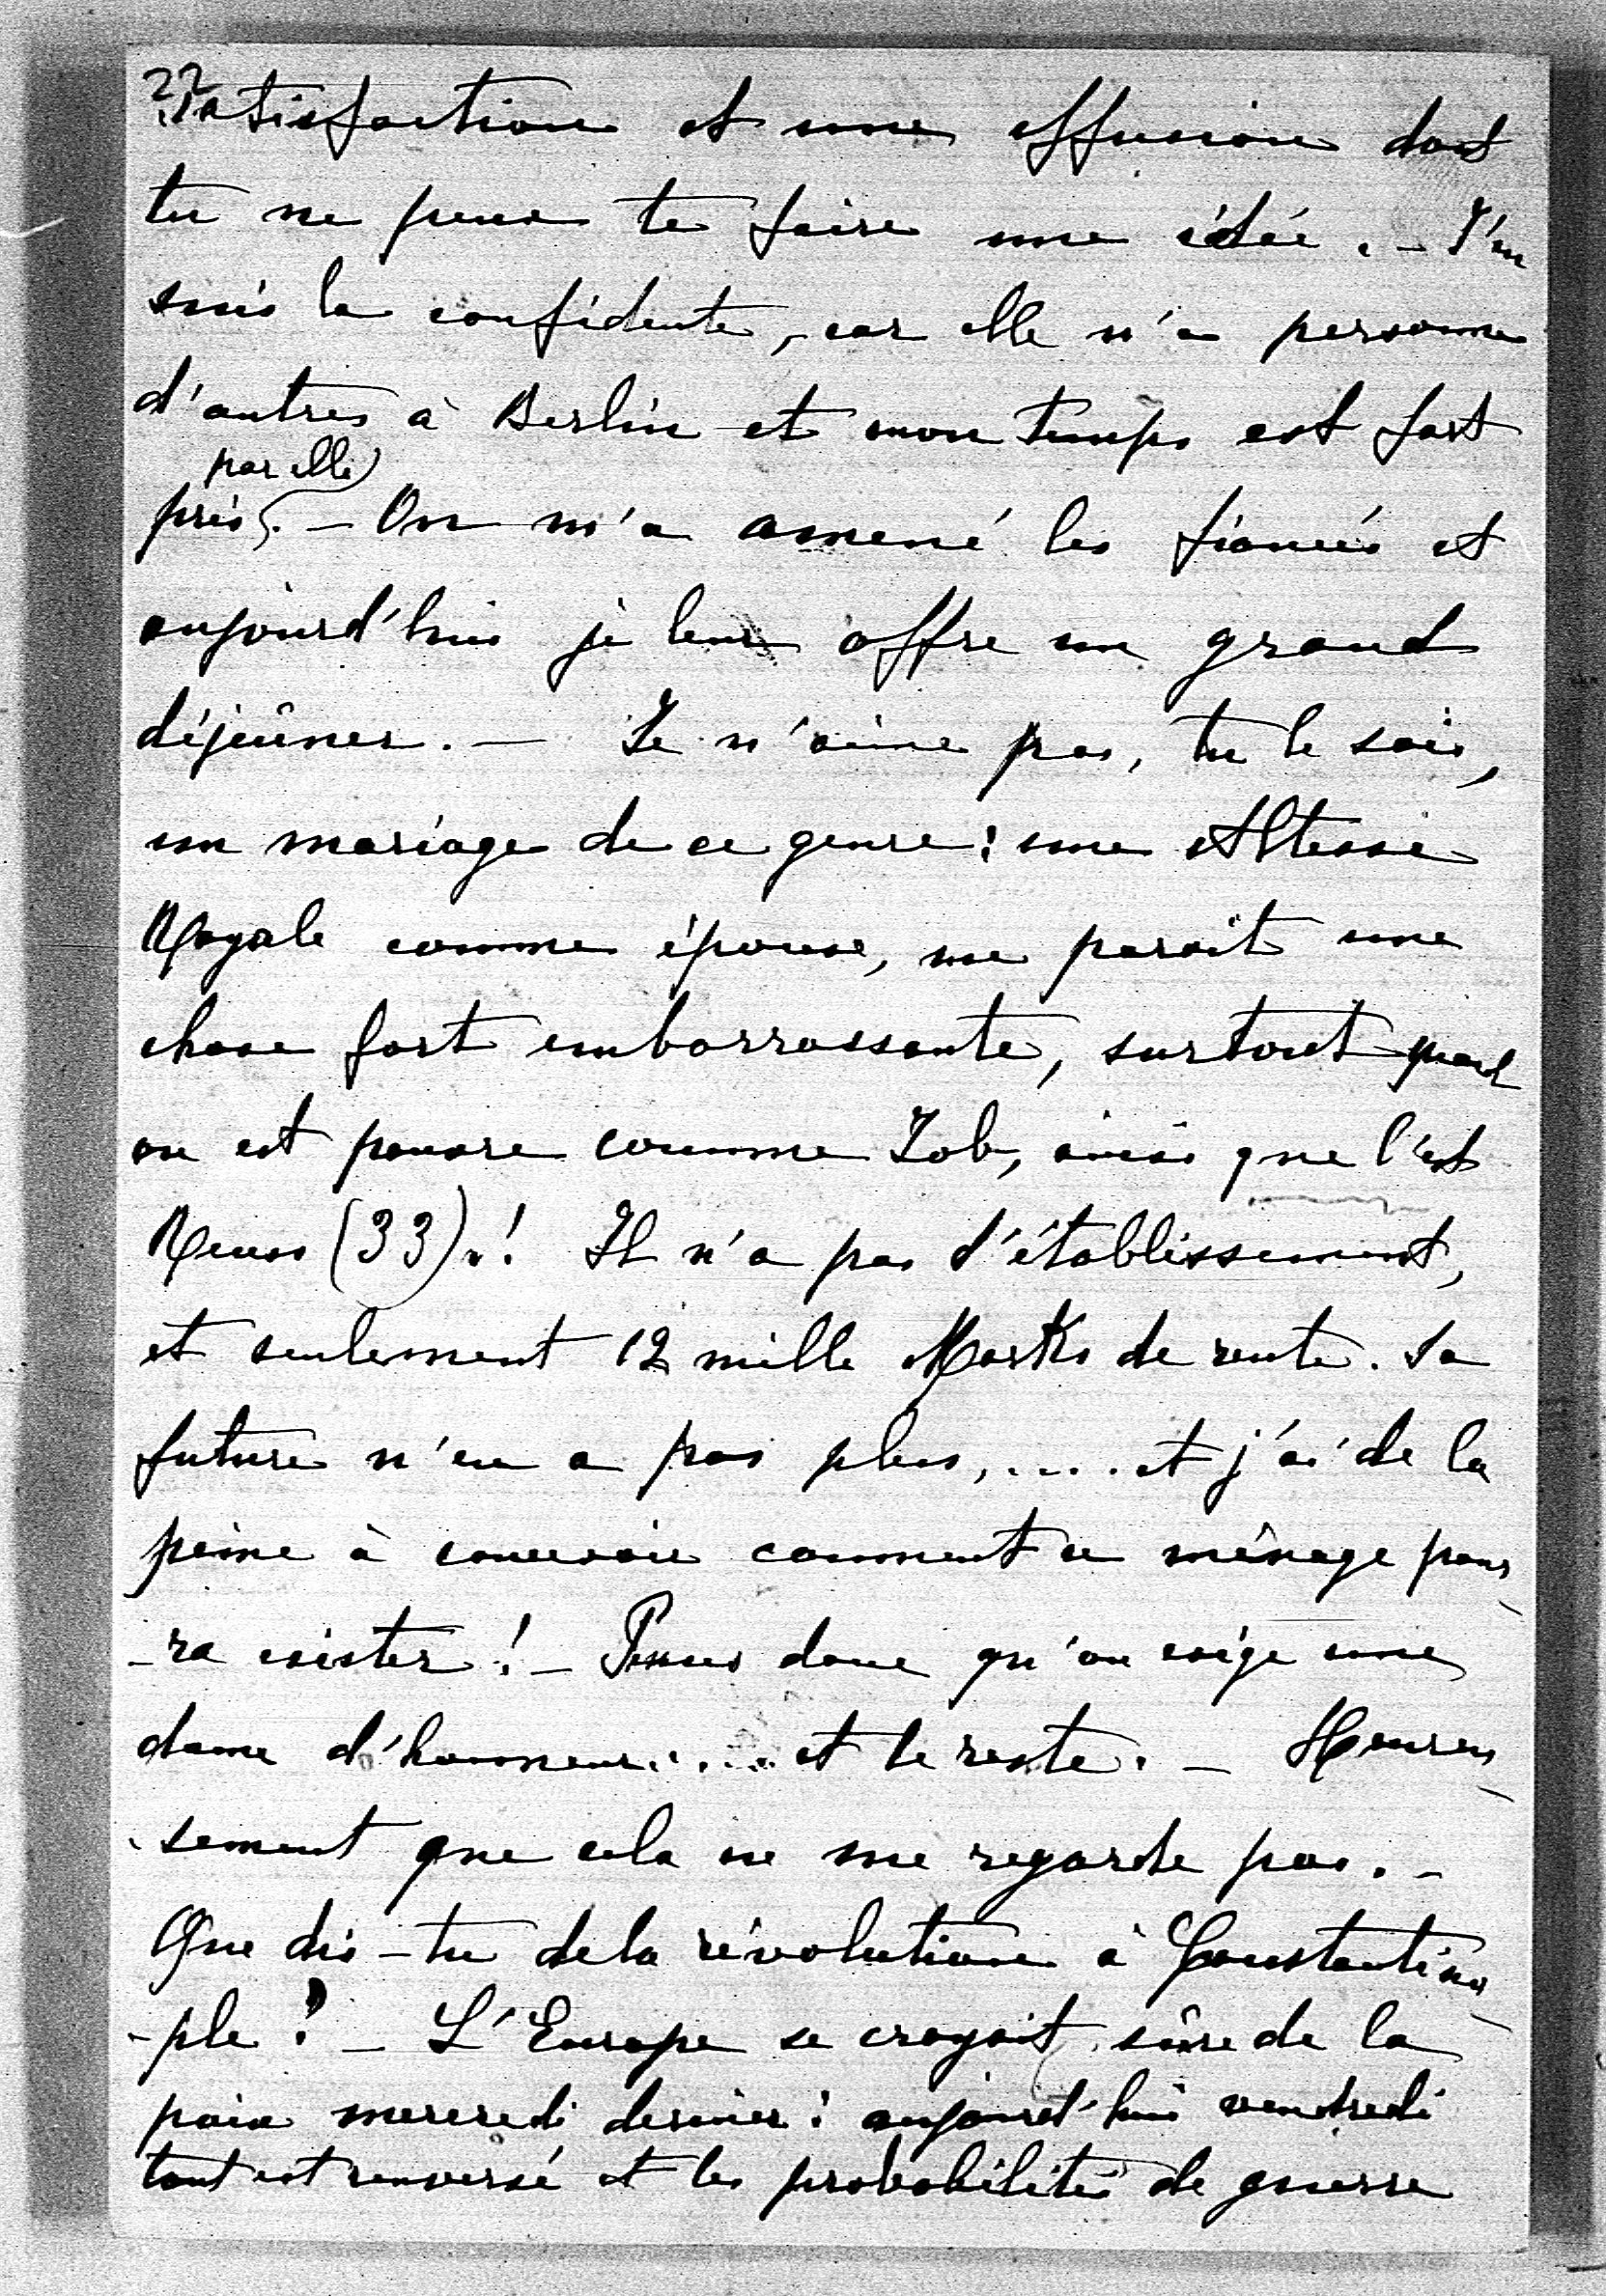 22
satisfaction et une effusion dont
tu ne peux te faire une idée. - J'en
suis la confidente, car elle n'a personne
d'autres à Berlin et mon temps est fort
par elle
pris. - On m'a amené les fiancés et
aujourd'hui je leur offre un grand
déjeûner. - Je n'aime pas, tu le sais,
un mariage de ce genre: une Altesse
Royale comme épouse, me parait une
chose fort embarrassante, surtout quand
on est pauvre comme Job, ainsi que l'est
Reuss (33)! Il n'a pas d'établissement,
et seulement 12 mille Marks de rente. Sa
future n'en a pas plus, .... et j'ai de la
peine à concevoir comment ce ménage pour-
-ra exister! - Penses donc qu'on exige une
dame d'honneur..... et le reste. - Heureu-
-sement que cela ne me regarde pas. -
Que dis-tu de la révolution à Constantino-
-ple? - L'Europe se croyait sûre de la
paix mercredi dernier: aujourd'hui vendredi
tout est renversé et les probabilités de guerre